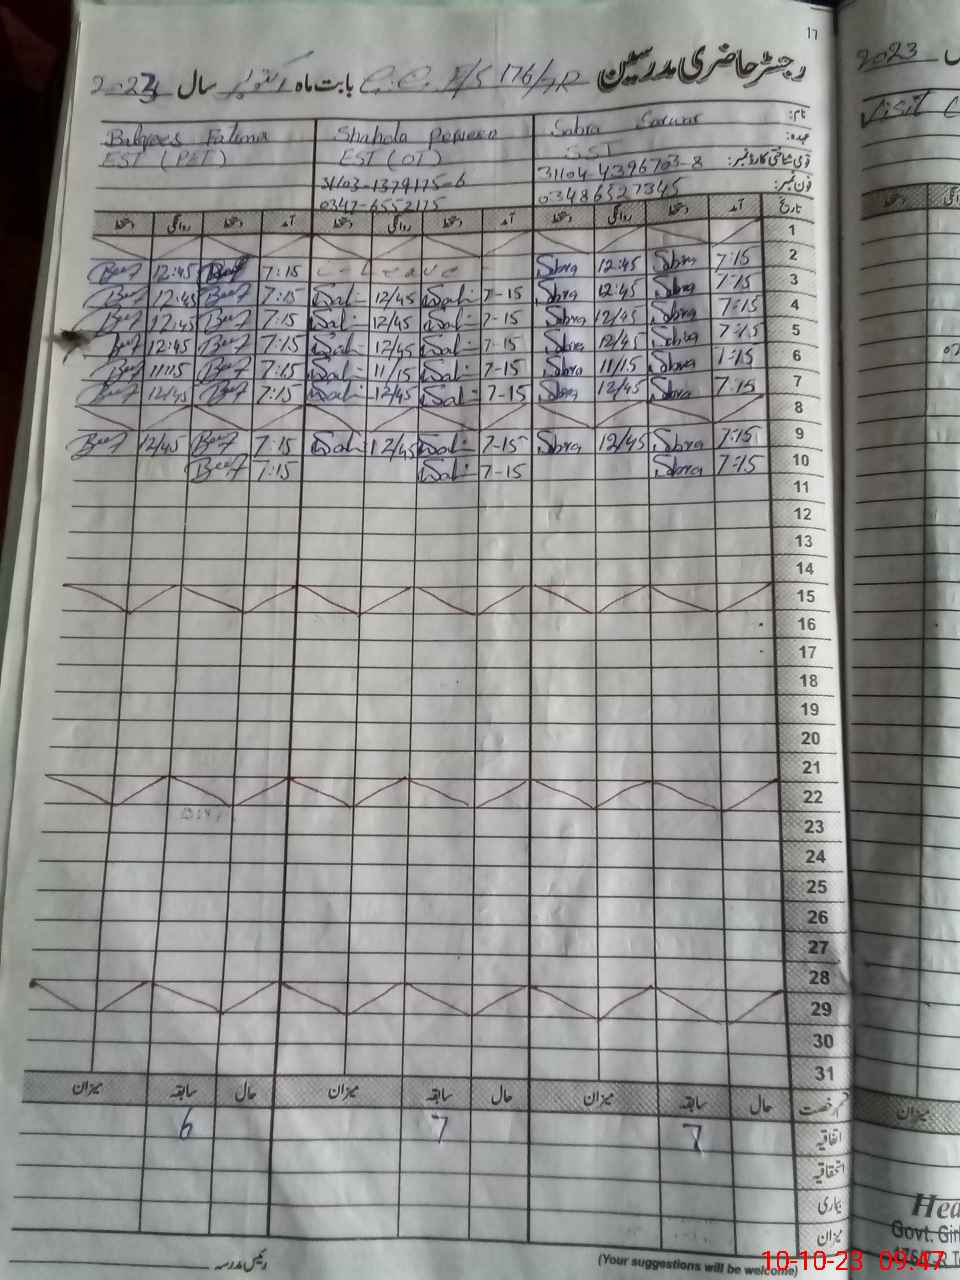 17
رجسٹر حاضری مدرسین G.G. E/S 176/7R بابت ماہ اکتوبر سال 2023
2023
نام: Sabra Sarwar Shahda Perveen Balqees Fatima
Visit
عہدہ: SST EST (OT) EST (PET)
قومی شناختی کارڈ نمبر: 31104-4396703-8 31103-1379175-6
فون نمبر: 03486527345 0347-6552175
تاریخ آمد دستخط روانگی دستخط آمد دستخط روانگی دستخط آمد دستخط روانگی دستخط
1
2 7:15 Sabra 12:45 Sabra C-Leave 7:15 12:45
3 7:15 Sabra 12:45 Sabra 7-15 12/45 7:15 12:45
4 7:15 Sabra 12/45 Sabra 7-15 12/45 7:15 12:45
5 7:15 Sabra 12/45 Sabra 7-15 12/45 7:15 12:45
6 7:15 Sabra 11/15 Sabra 7-15 11/15 7:15 11:15
7 7:15 Sabra 12/45 Sabra 7-15 12/45 7:15 12/45
8
9 7:15 Sabra 12/45 Sabra 7-15 12/45 7:15 12/45
10 7:15 Sabra 7-15 7:15
11
12
13
14
15
16
17
18
19
20
21
22
23
24
25
26
27
28
29
30
31
قسم رخصت حال سابقہ میزان حال سابقہ میزان حال سابقہ میزان
میزان
اتفاقیہ 7 7 6
استحقاقیہ
بیماری
میزان
Hea
Govt. Girl
رئیس مدرسہ
(Your suggestions will be welcome)
10-10-23 09:47